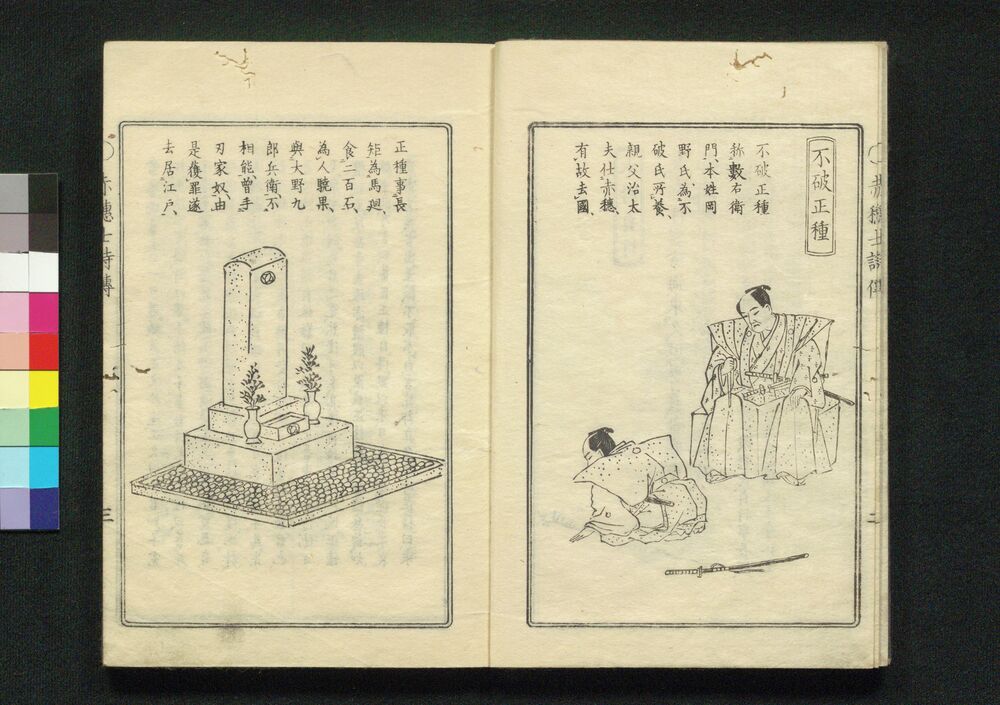 不破正種
不破正種
称數右衛
門、本姓岡
野氏、為不
破氏所養、
親父治太
夫仕赤穗、
有故去國、
正種事長
矩為馬廻、
食二百石、
為人驍果、
與大野九
郎兵衛不
相能、曽手
刃家奴、由
是獲罪遂
去居江戸、
赤穗士詩傳
三